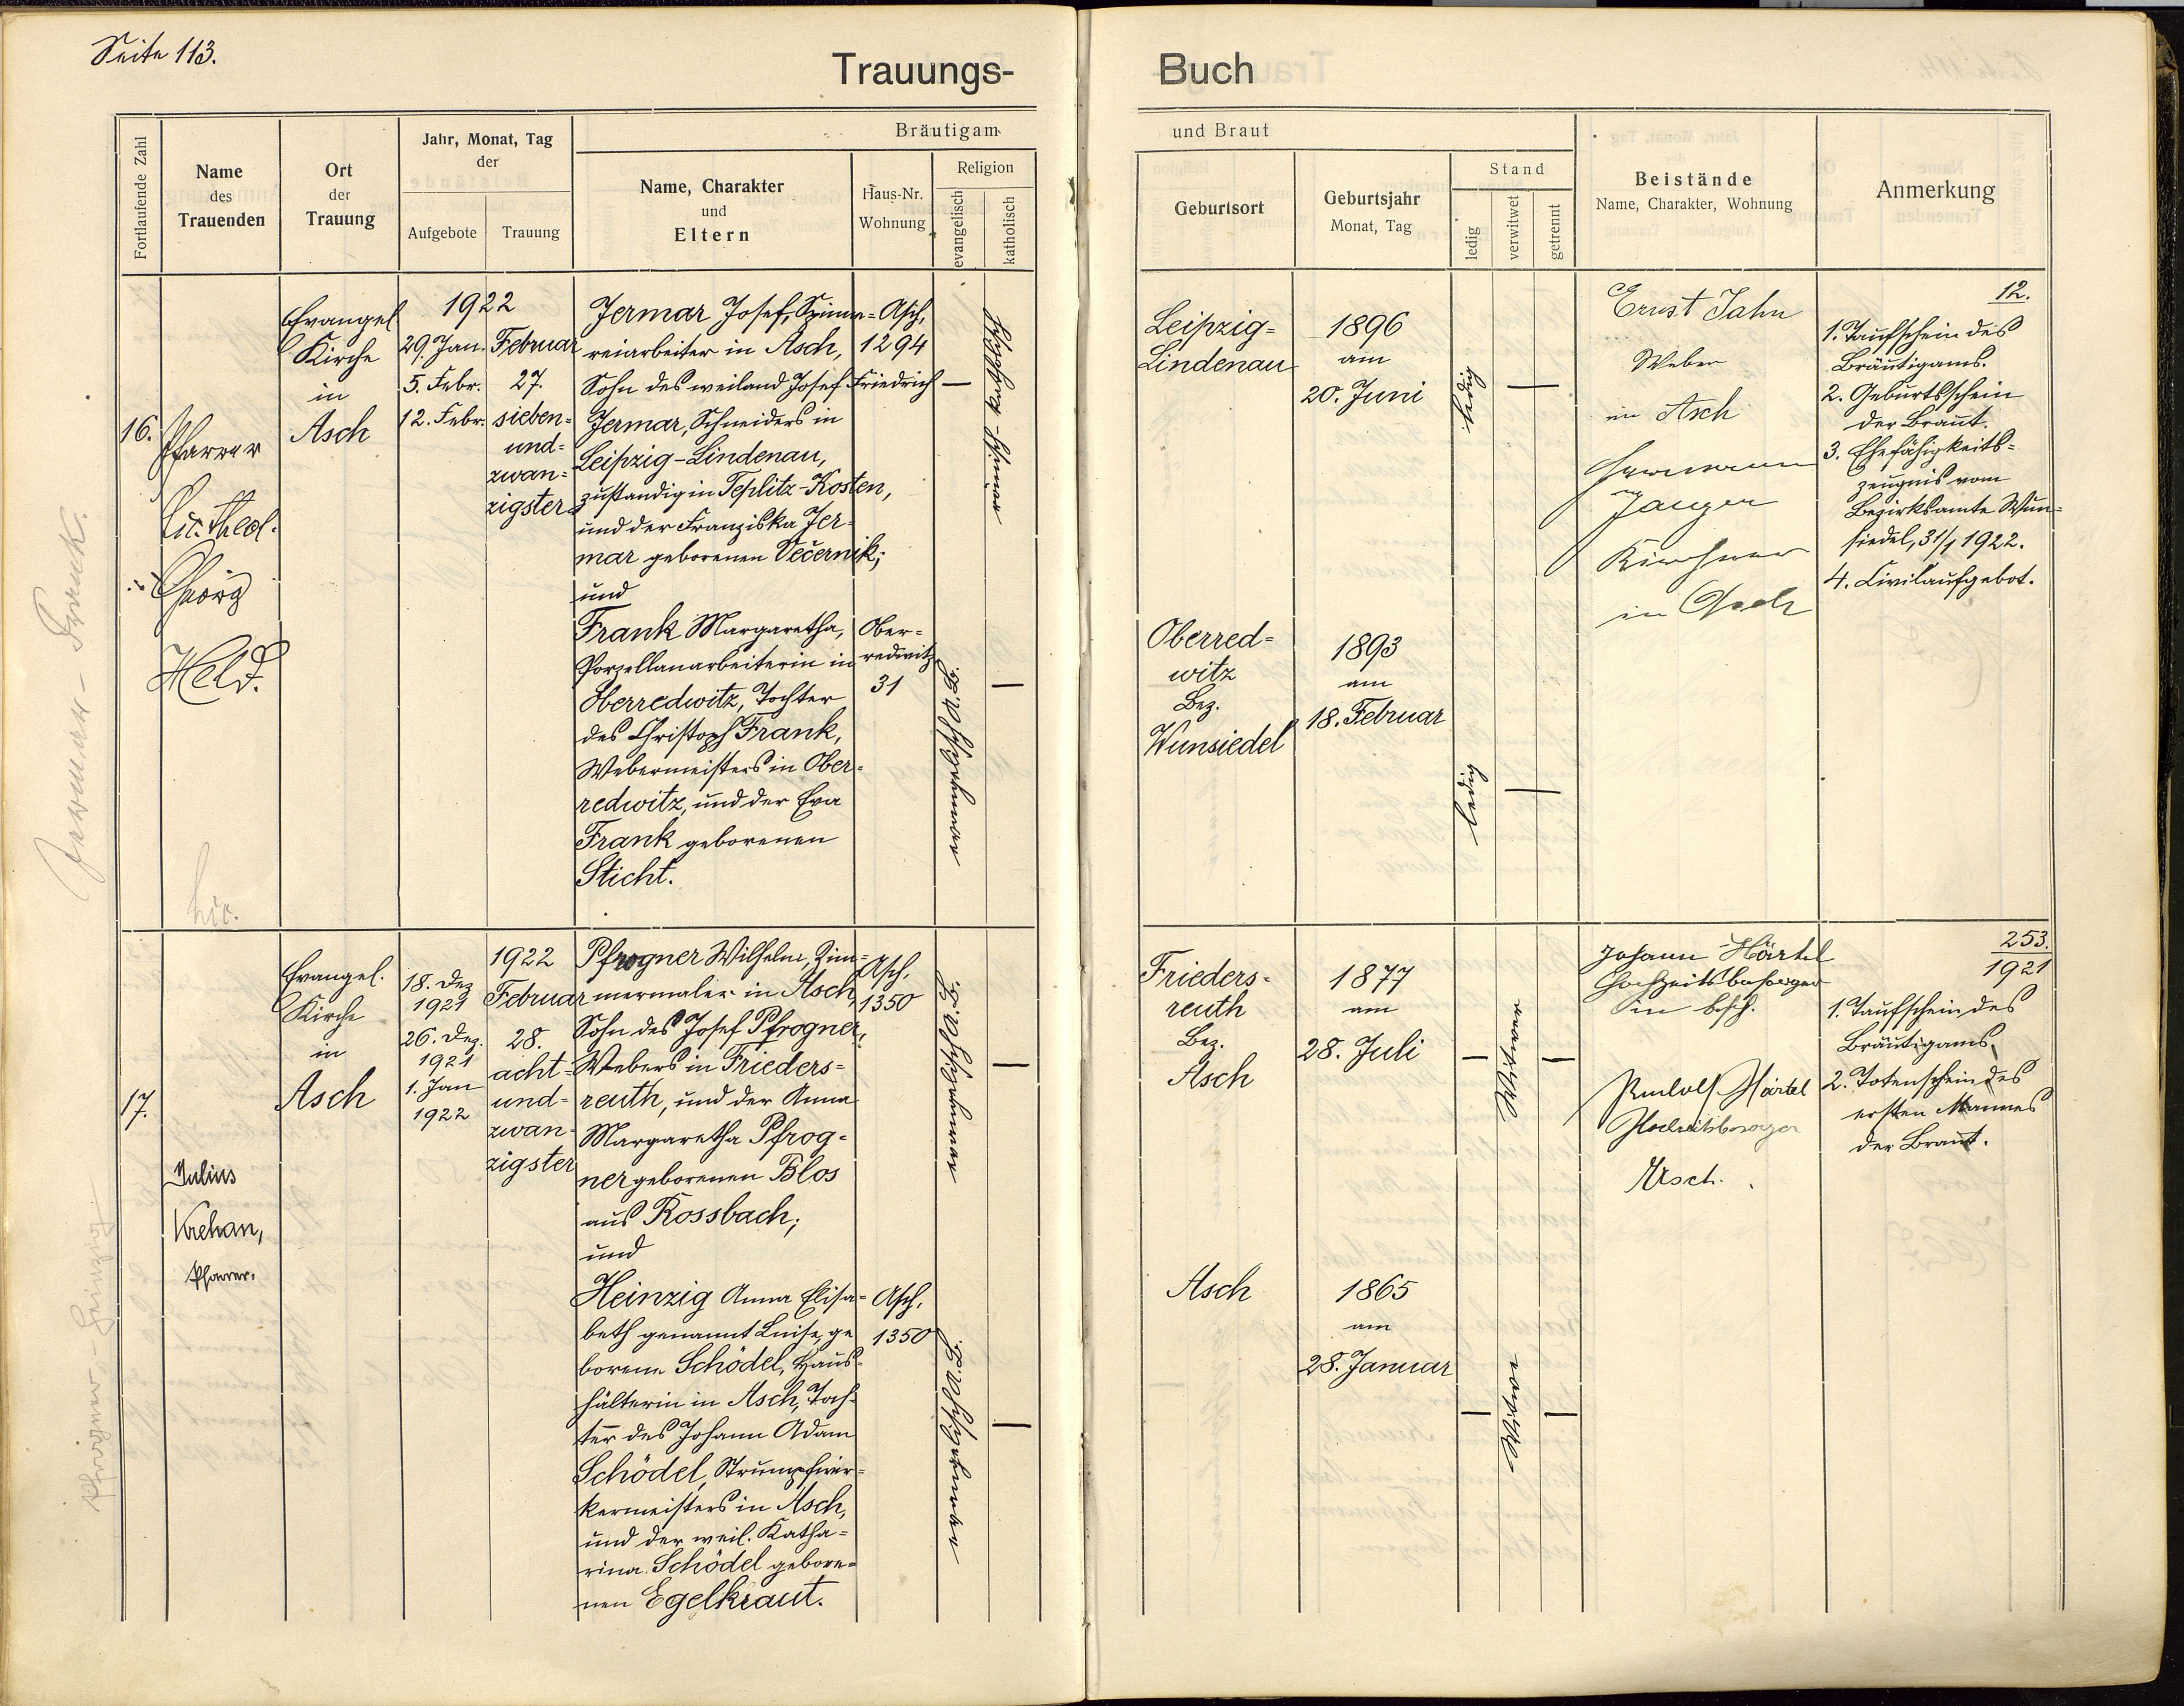 Seite 113.
Trauungs-Buch
Fortlaufende Zahl
Name
des
Trauenden
Ort
der
Trauung
Jahr, Monat, Tag
der
Aufgebote
Trauung
Bräutigam
Name, Charakter
und
Eltern
Haus-Nr.
Wohnung
Religion
evangelisch
katholisch
und Braut
Geburtsort
Geburtsjahr
Monat, Tag
Stand
ledig
verwitwet
getrennt
Beistände
Name, Charakter, Wohnung
Anmerkung
16.
Pfarrer
Lic. theol.
Georg
Held.
Evangel.
Kirche
in
Asch
29. Jan.
5. Febr.
12. Febr.
1922
Februar
27.
sieben-
und-
zwan-
zigster
Jermar Josef, Spinne-
reiarbeiter in Asch,
Sohn des weiland Josef Friedrich
Jermar, Schneiders in
Leipzig-Lindenau,
zuständig in Teplitz-Kosten,
und der Franziska Jer-
mar geborenen Večernik;
und
Frank Margaretha,
Porzellanarbeiterin in
Oberredwitz, Tochter
des Christoph Frank,
Webermeisters in Ober-
redwitz, und der Eva
Frank geborenen
Sticht.
Asch,
1294
Ober-
redwitz
31
Leipzig-
Lindenau
1896
am
20. Juni
ledig
Oberred-
witz
Bez.
Wunsiedel
1893
am
18. Februar
ledig
Ernst Jahn
Weber
in Asch
Hermann
Jaeger
Kirchner
in Asch
12.
1. Taufschein des
Bräutigams.
2. Geburtsschein
der Braut.
3. Ehefähigkeits-
zeugnis vom
Bezirksamte Wun-
siedel, 31/1 1922.
4. Civilaufgebot.
Frank.
17.
Julius
Krehan,
Pfarrer.
Evangel.
Kirche
in
Asch
18. Dez
1921
26. Dez.
1921
1. Jan
1922
1922
Februar
28.
acht-
und-
zwan-
zigster
Pfrogner Wilhelm, Zim-
mermaler in Asch,
Sohn des Josef Pfrogner,
Webers in Frieders-
reuth, und der Anna
Margaretha Pfrog-
ner geborenen Blos
aus Rossbach;
und
Heinzig Anna Elisa-
beth genannt Luise, ge
borene Schödel, Haus-
hälterin in Asch, Toch-
ter des Johann Adam
Schödel, Strumpfwir-
kermeisters in Asch,
und der weil. Katha-
rina Schödel gebore-
nen Egelkraut.
Asch,
1350
Asch,
1350
Frieders-
reuth
Bez.
Asch
1877
am
28. Juli
Witwer
Asch
1865
am
28. Januar
Witwe
Johann Härtel
Hochzeitsbesorger
in Asch.
Rudolf Härtel
Hochzeitsbesorger
Asch.
253.
1921
1. Taufschein des
Bräutigams.
2. Totenschein des
ersten Mannes
der Braut.
Pfrogner - Heinzig